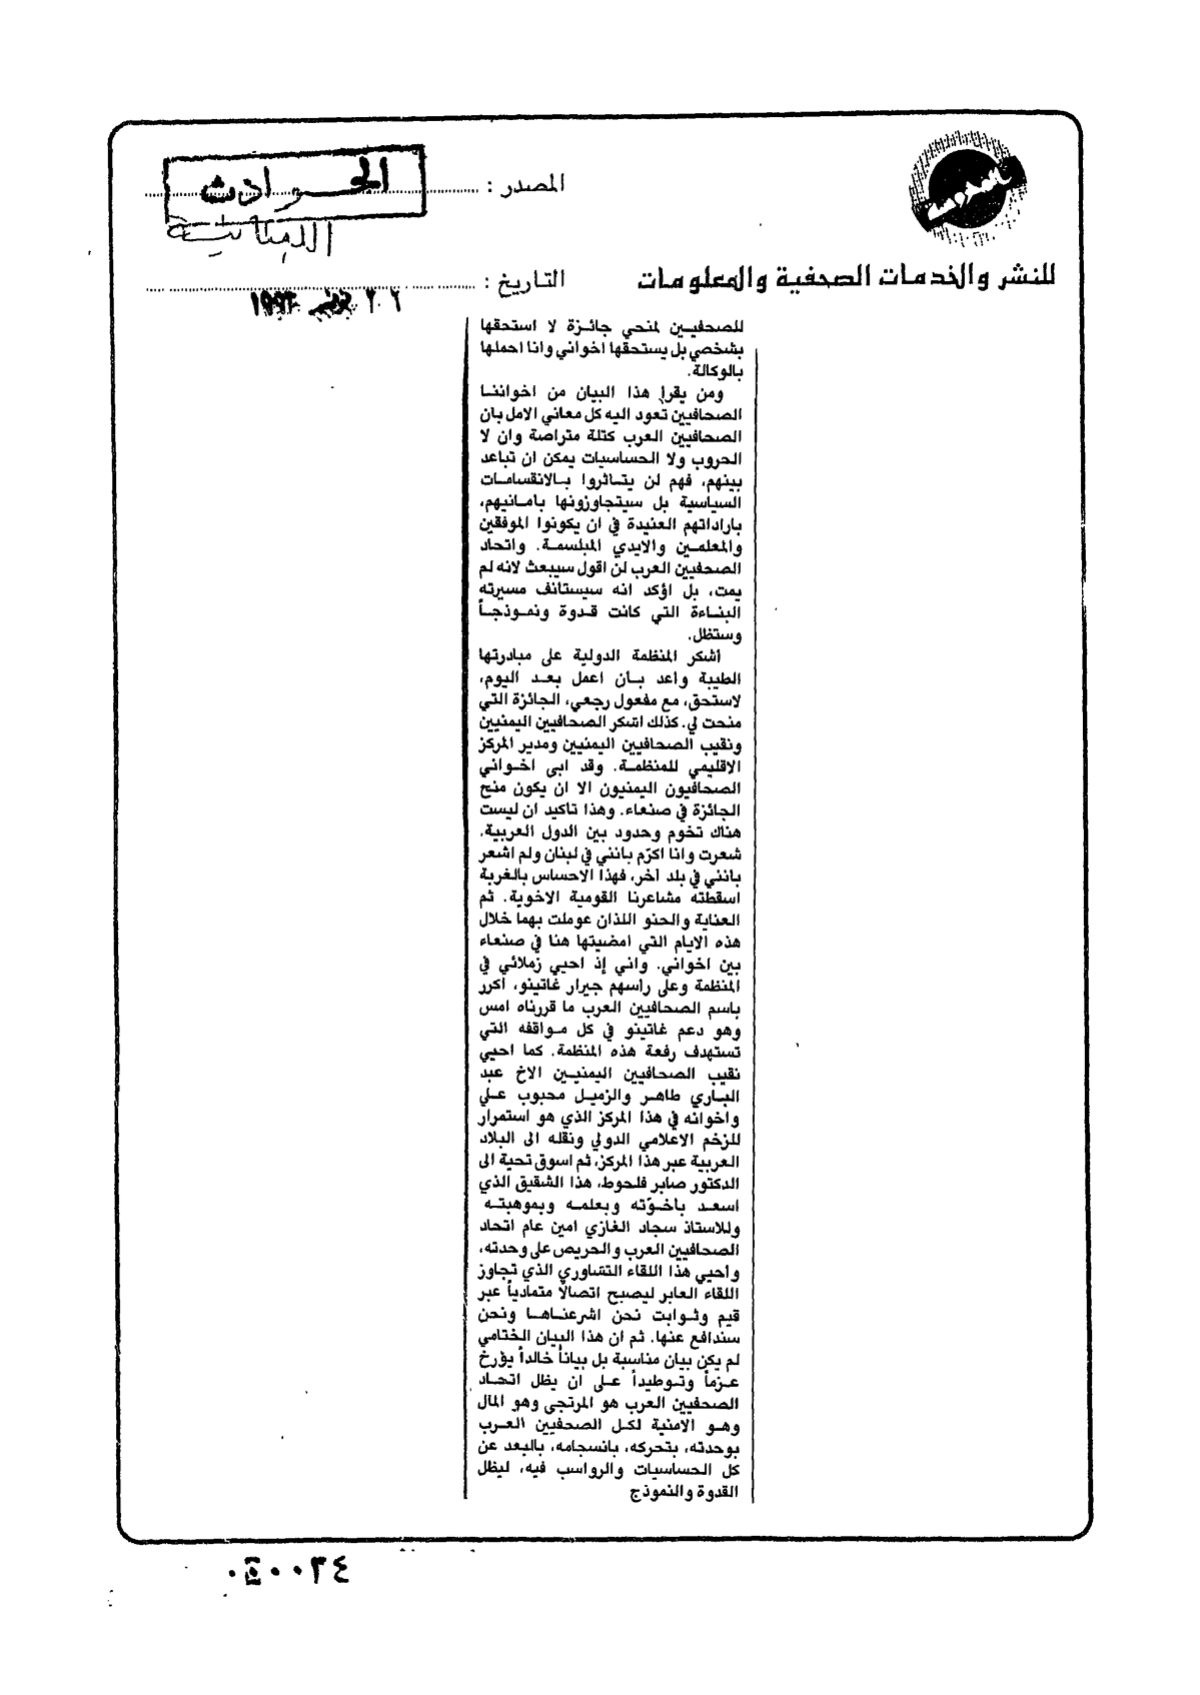 المصدر :
الحوادث
اللبنانية
للنشر والخدمات الصحفية والمعلومات
التاريخ :
للصحفيين لمنحي جائزة لا استحقها
بشخصي بل يستحقها اخواني وانا احملها
بالوكالة.
ومن يقرا هذا البيان من اخواننا
الصحافيين تعود اليه كل معاني الامل بان
الصحافيين العرب كتلة متراصة وان لا
الحروب ولا الحساسيات يمكن ان تباعد
بينهم، فهم لن يتاثروا بالانقسامات
السياسية بل سيتجاوزونها بامانيهم،
باراداتهم العنيدة في ان يكونوا الموفقين
والمعلمين والايدي المبلسمة. واتحاد
الصحفيين العرب لن اقول سيبعث لانه لم
يمت، بل اؤكد انه سيستانف مسيرته
البناءة التي كانت قدوة ونموذجاً
وستظل.
أشكر المنظمة الدولية على مبادرتها
الطيبة واعد بان اعمل بعد اليوم،
لاستحق، مع مفعول رجعي، الجائزة التي
منحت لي. كذلك اشكر الصحافيين اليمنيين
ونقيب الصحافيين اليمنيين ومدير المركز
الاقليمي للمنظمة. وقد ابى اخواني
الصحافيون اليمنيون الا ان يكون منح
الجائزة في صنعاء. وهذا تاكيد ان ليست
هناك تخوم وحدود بين الدول العربية.
شعرت وانا اكرّم بانني في لبنان ولم اشعر
بانني في بلد آخر، فهذا الاحساس بالغربة
اسقطته مشاعرنا القومية الاخوية. ثم
العناية والحنو اللذان عوملت بهما خلال
هذه الايام التي امضيتها هنا في صنعاء
بين اخواني. واني إذ احيي زملائي في
المنظمة وعلى راسهم جيرار غاتينو، اكرر
باسم الصحافيين العرب ما قررناه امس
وهو دعم غاتينو في كل مواقفه التي
تستهدف رفعة هذه المنظمة. كما احيي
نقيب الصحافيين اليمنيين الاخ عبد
الباري طاهر والزميل محبوب علي
واخوانه في هذا المركز الذي هو استمرار
للزخم الاعلامي الدولي ونقله الى البلاد
العربية عبر هذا المركز، ثم اسوق تحية الى
الدكتور صابر فلحوط، هذا الشقيق الذي
اسعد باخوّته وبعلمه وبموهبته
وللاستاذ سجاد الغازي امين عام اتحاد
الصحافيين العرب والحريص على وحدته،
واحيي هذا اللقاء التشاوري الذي تجاوز
اللقاء العابر ليصبح اتصالاً متمادياً عبر
قيم وثوابت نحن اشرعناها ونحن
سندافع عنها. ثم ان هذا البيان الختامي
لم يكن بيان مناسبة بل بياناً خالداً يؤرخ
عزماً وتوطيداً على ان يظل اتحاد
الصحفيين العرب هو المرتجى وهو المال
وهو الامنية لكل الصحفيين العرب
بوحدته، بتحركه، بانسجامه، بالبعد عن
كل الحساسيات والرواسب فيه، ليظل
القدوة والنموذج